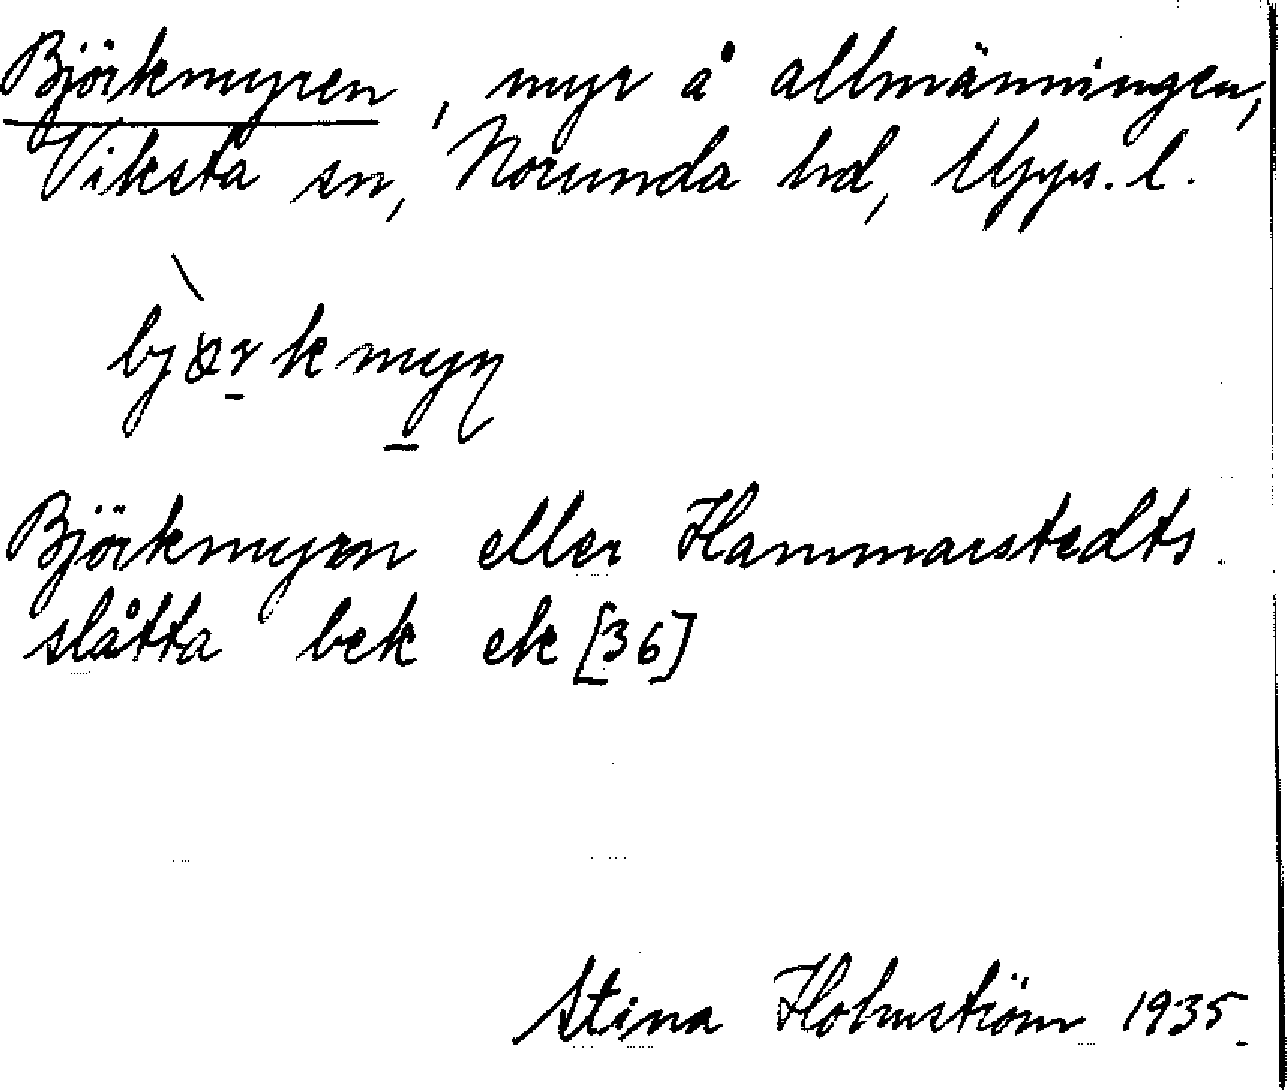 Björkmyren, myr å allmänningen,
Viksta sn, Norunda hd, Upps. l.
bjòrkmyɳ
Björkmyrn eller Hammarstedts
slåtta bek ek [36]
Stina Holmström 1935